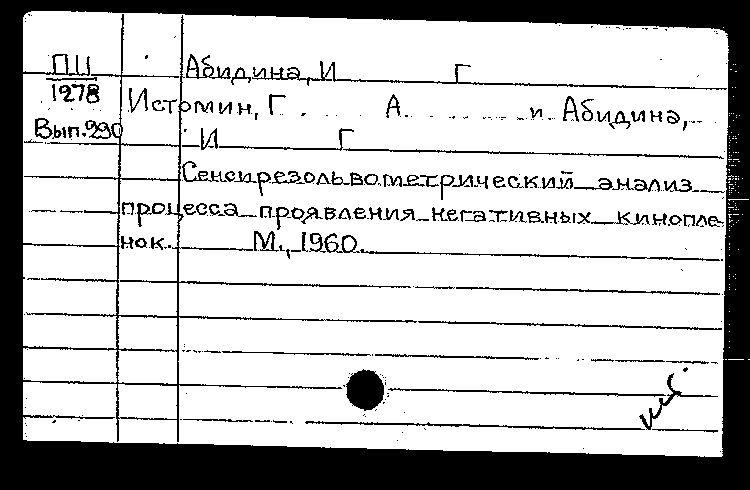 ПЦ Абидина, И Г
1278 Истомин, Г. А. и Абидина,
Вып.290 И Г
Сенсирезольвометрический анализ
процесса проявления негативных кинопле-
нок. М., 1960.